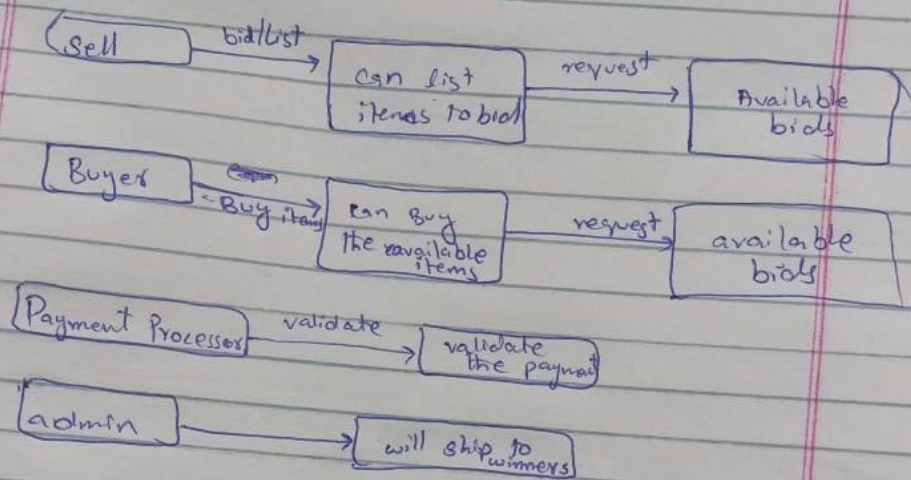 Sell
bid/List
can list
items to bid
request
Available
bids
Buyer
Buy items
can Buy
the available
items
request
available
bids
Payment Processor
validate
validate
the payment
admin
will ship to
winners